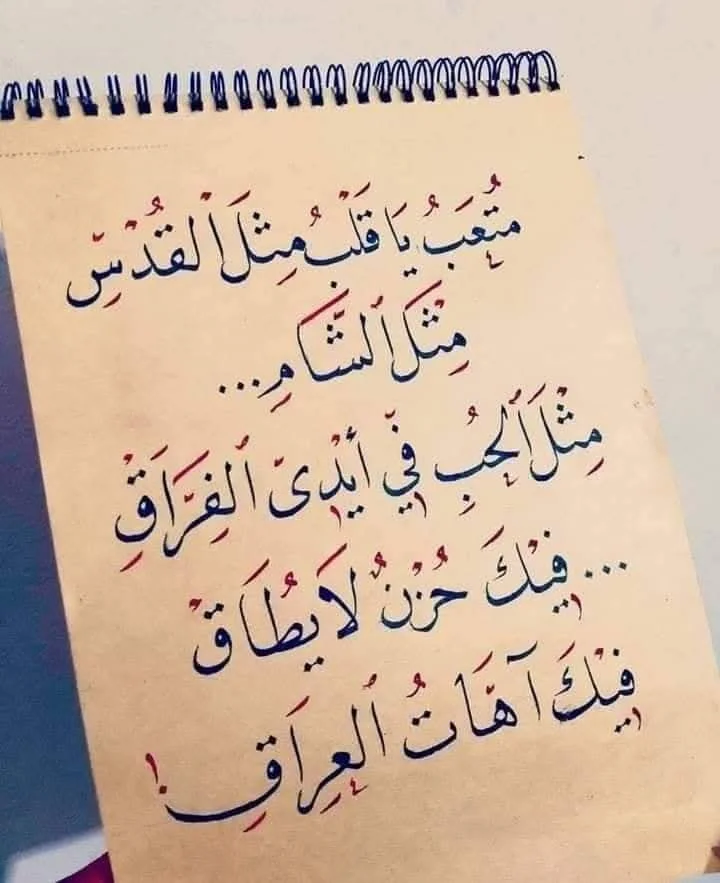 مُتْعَبُ يَا قَلْبُ مِثْلَ الْقُدْسِ
مِثْلَ الشَّامِ...
مِثْلَ الْحُبِ فِي أَيْدِى الْفِرَاقْ
... فِيْكَ حُزْنٌ لَا يُطَاقْ
فِيْكَ آهَاتُ الْعِرَاقِ!